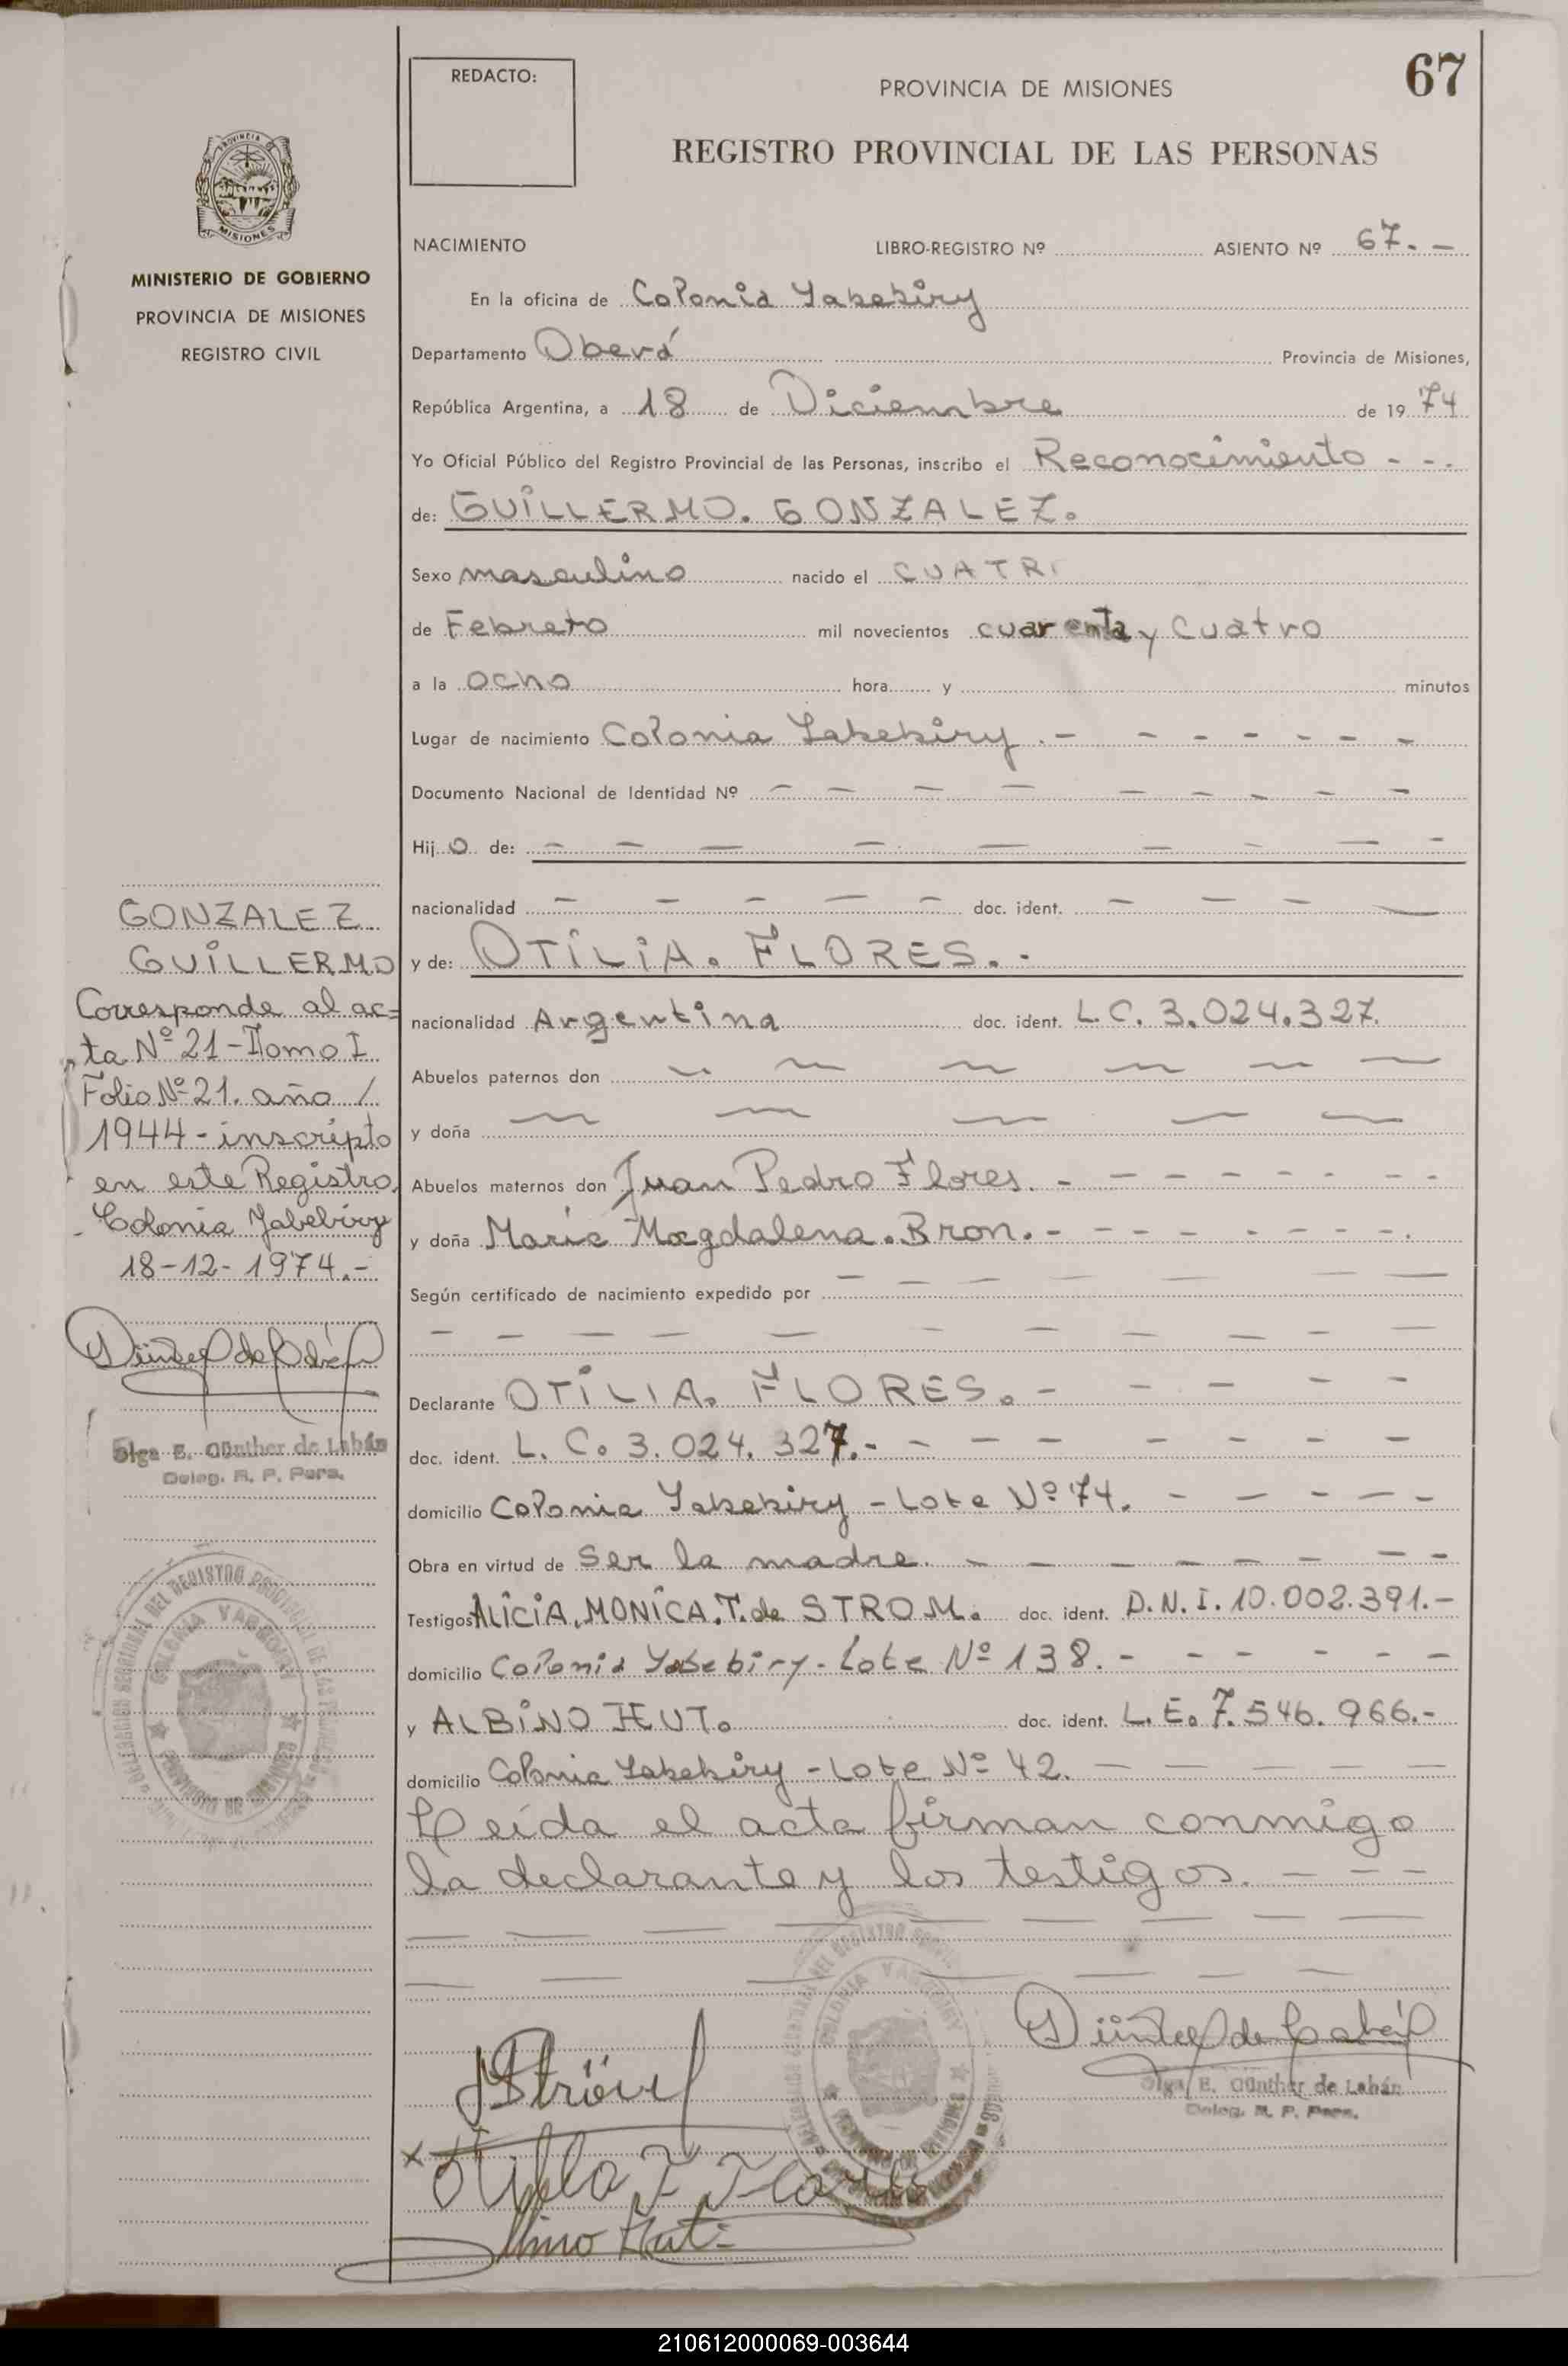 67
REDACTO:
PROVINCIA DE MISIONES
REGISTRO PROVINCIAL DE LAS PERSONAS
MISIONES
MINISTERIO DE GOBIERNO
PROVINCIA DE MISIONES
REGISTRO CIVIL
NACIMIENTO LIBRO-REGISTRO Nº ASIENTO Nº 67.-
En la oficina de Colonia Yabebiry
Departamento Oberá Provincia de Misiones,
República Argentina, a 18 de Diciembre de 1974
Yo Oficial Público del Registro Provincial de las Personas, inscribo el Reconocimiento - - -
de: GUILLERMO. GONZALEZ.
Sexo masculino nacido el CUATR
de Febrero mil novecientos cuarenta y cuatro
a la ocho hora y minutos
Lugar de nacimiento Colonia Yabebiry .- - - - - - -
Documento Nacional de Identidad Nº - - - - - - - - -
Hijo de: - - - - - - - - -
nacionalidad - - - - - doc. ident. - - - -
y de: OTILIA. FLORES. -
nacionalidad Argentina doc. ident. L.C. 3.024.327.
Abuelos paternos don - - - - - -
y doña - - - - -
Abuelos maternos don Juan Pedro Flores. - - - - - - - - -
y doña María Magdalena. Bron. - - - - - - - - -
Según certificado de nacimiento expedido por - - - - - - - -
- - - - - - - - - - -
Declarante OTILIA. FLORES. - - - - - -
doc. ident. L. C. 3. 024. 327.- - - - - - - -
domicilio Colonia Yabebiry - Lote Nº 74. - - - - - -
Obra en virtud de Ser la madre. - - - - - - - -
Testigos ALICIA. MONICA. T. de STROM. doc. ident. D.N.I. 10.002.391.-
domicilio Colonia Yabebiry - Lote Nº 138. - - - - - -
y ALBINO HUT. doc. ident. L.E. 7.546.966.-
domicilio Colonia Yabebiry - Lote Nº 42. - - - - -
Leída el acta firman conmigo
la declarante y los testigos. - - -
GONZALEZ
GUILLERMO
Corresponde al ac=
ta Nº 21 - Tomo I
Folio Nº 21. año /
1944 - inscripto
en este Registro.
Colonia Yabebiry
18-12-1974.-
Olga E. Günther de Labán
Deleg. R. P. Pers.
Olga E. Günther de Labán
Deleg. R. P. Pers.
Otilia F Flores
Albino Hut
210612000069-003644